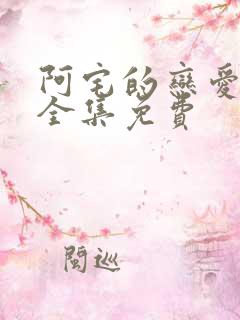 阿宅的戀愛
全集免費
閩巡